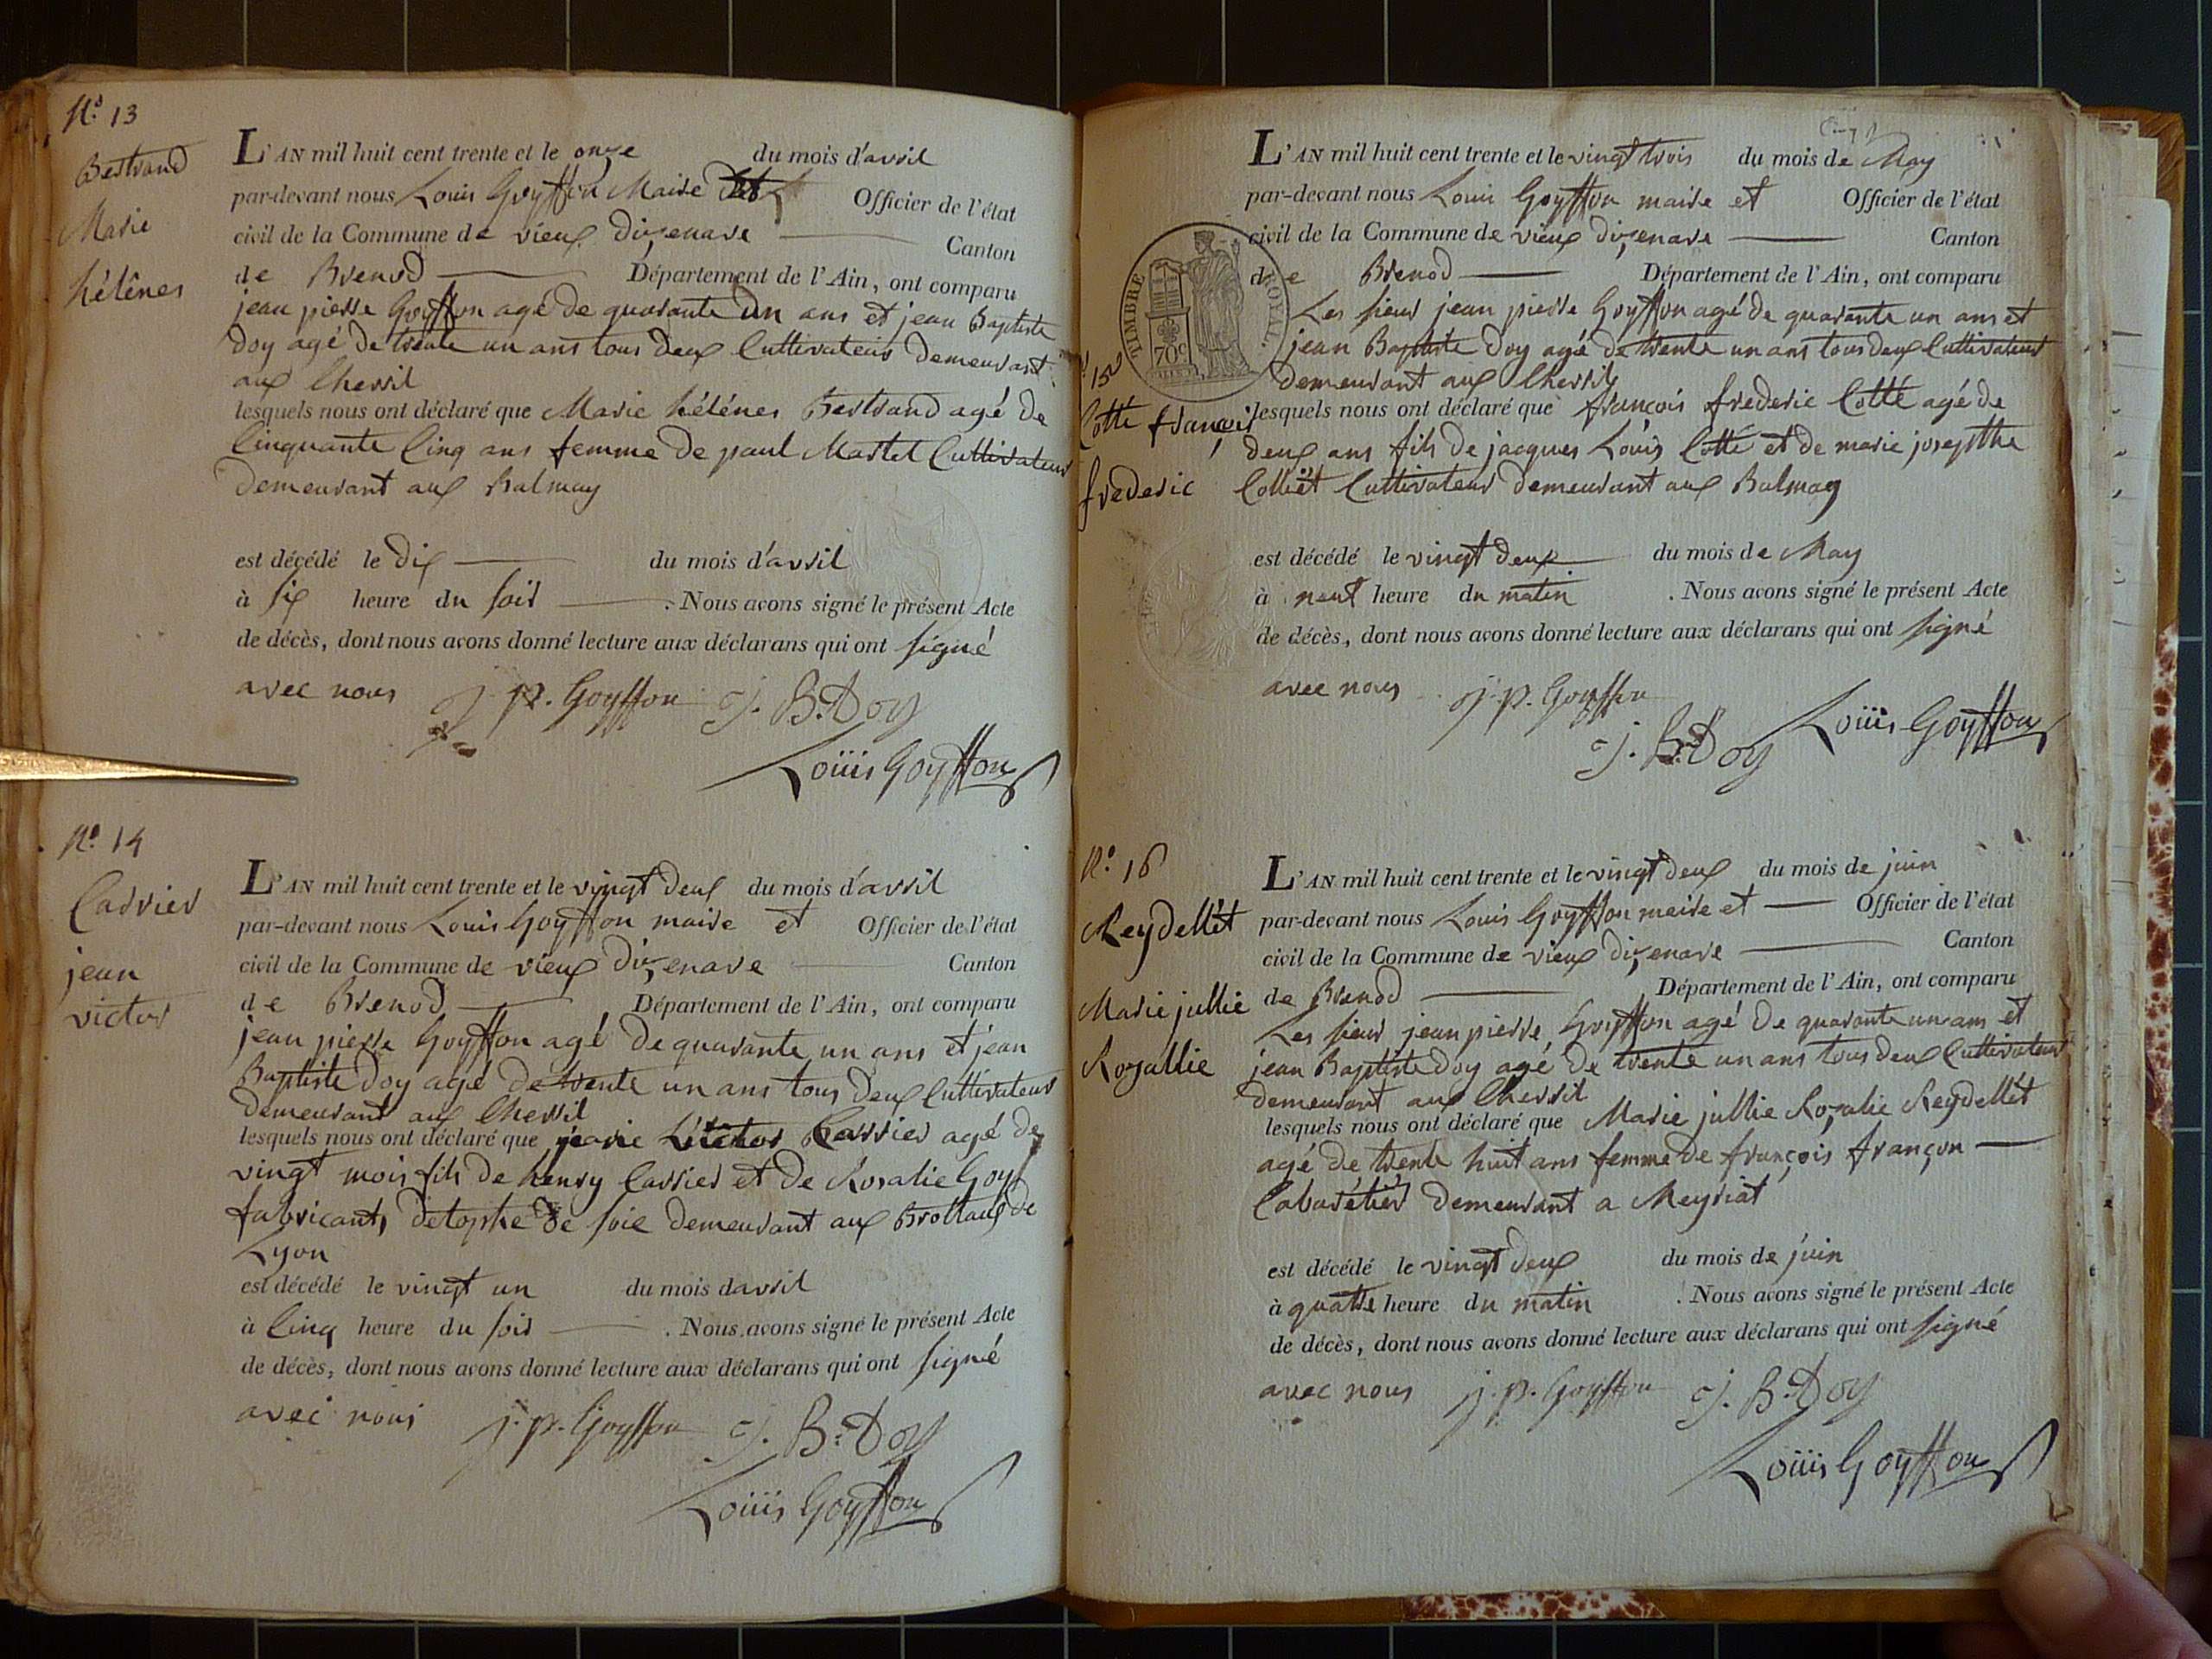 N.o 13
Bertrand
Marie
hélênes
L'AN mil huit cent trente et le onze du mois d'avril
par-devant nous Louis Goyffon Maire Officier de l'état
civil de la Commune de vieux dizenave Canton
de Brenod Département de l'Ain, ont comparu
jean pierre Goyffon agé de quarante un ans et jean Baptiste
Doy agé de trente un ans tous deux Cultivateurs demeurant
aux Chevril
lesquels nous ont déclaré que Marie hélénes Bertrand agé de
Cinquante Cinq ans femme de paul Martel Cultivateur
demeurant aux Balmay
est décédé le dix du mois d'avril
à six heure du soir . Nous avons signé le présent Acte
de décès, dont nous avons donné lecture aux déclarans qui ont signé
avec nous j. p. Goyffon J. B. Doy
Loüis Goyffon
N.o 14
Carrier
jean
victor
L'AN mil huit cent trente et le vingt deux du mois d'avril
par-devant nous Louis Goyffon maire et Officier de l'état
civil de la Commune de vieux dizenave Canton
de Brenod Département de l'Ain, ont comparu
jean pierre Goyffon agé de quarante un ans et jean
Baptiste Doy agé de trente un ans tous deux Cultivateurs
demeurant aux Chevril
lesquels nous ont déclaré que Carrier agé de
vingt mois fils de henry Carrier et de Rosalie Goy
fabricants detophe de soie demeurant aux Brottaux de
Lyon
est décédé le vingt un du mois davril
à Cinq heure du soir . Nous avons signé le présent Acte
de décès, dont nous avons donné lecture aux déclarans qui ont signé
avec nous j. p. Goyffon J. B. Doy
Loüis Goyffon
L'AN mil huit cent trente et le vingt trois du mois de May
par-devant nous Louis Goyffon maire et Officier de l'état
civil de la Commune de vieux dizenave Canton
de Brenod Département de l'Ain, ont comparu
TIMBRE ROYAL.
70c
Les sieur jean pierre Goyffon agé de quarante un ans et
jean Baptiste Doy agé de trente un ans tous deux Cultivateur
demeurant aux Chevril
15
Cotté françois
frederic
lesquels nous ont déclaré que françois frederic Cotté agé de
deux ans fils de jacques Louis Cotté et de marie josepthe
Colliët Cultivateur demeurant aux Balmay
est décédé le vingt deux du mois de May
à neuf heure du matin . Nous avons signé le présent Acte
de décès, dont nous avons donné lecture aux déclarans qui ont signé
avec nous j. p. Goyffon
J. B. Doy Loüis Goyffon
N.o 16
Reydellét
Marie jullie
Rozallie
L'AN mil huit cent trente et le vingt deux du mois de juin
par-devant nous Louis Goyffon maire et Officier de l'état
civil de la Commune de vieux dizenave Canton
de Brenod Département de l'Ain, ont comparu
Les sieur jean pierre Goyffon agé de quarante un ans et
jean Baptiste Doy agé de trente un ans tous deux Cultivateur
demeurant aux Chevril
lesquels nous ont déclaré que Marie jullie Rozalie Reydellét
agé de trente huit ans femme de françois françon
Cabarétiér demeurant a Meyriat
est décédé le vingt deux du mois de juin
à quatre heure du matin . Nous avons signé le présent Acte
de décès, dont nous avons donné lecture aux déclarans qui ont signé
avec nous j. p. Goyffon J. B. Doy
Loüis Goyffon